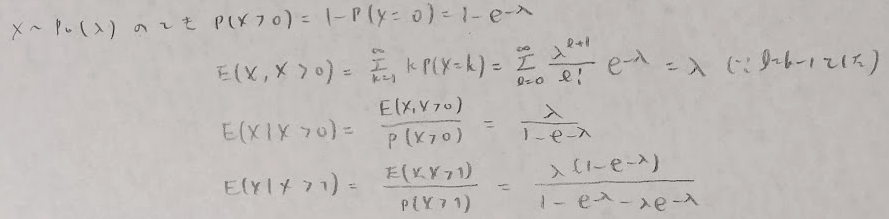 X ~ Po(λ) のとき P(X>0) = 1-P(X=0) = 1-e^{-λ}
E(X, X>0) = Σ_{k=1}^{∞} k P(X=k) = Σ_{l=0}^{∞} λ^{l+1}/l! e^{-λ} = λ (∵ l=k-1とした)
E(X|X>0) = E(X, X>0)/P(X>0) = λ/(1-e^{-λ})
E(X|X>1) = E(X, X>1)/P(X>1) = λ(1-e^{-λ})/(1-e^{-λ}-λe^{-λ})